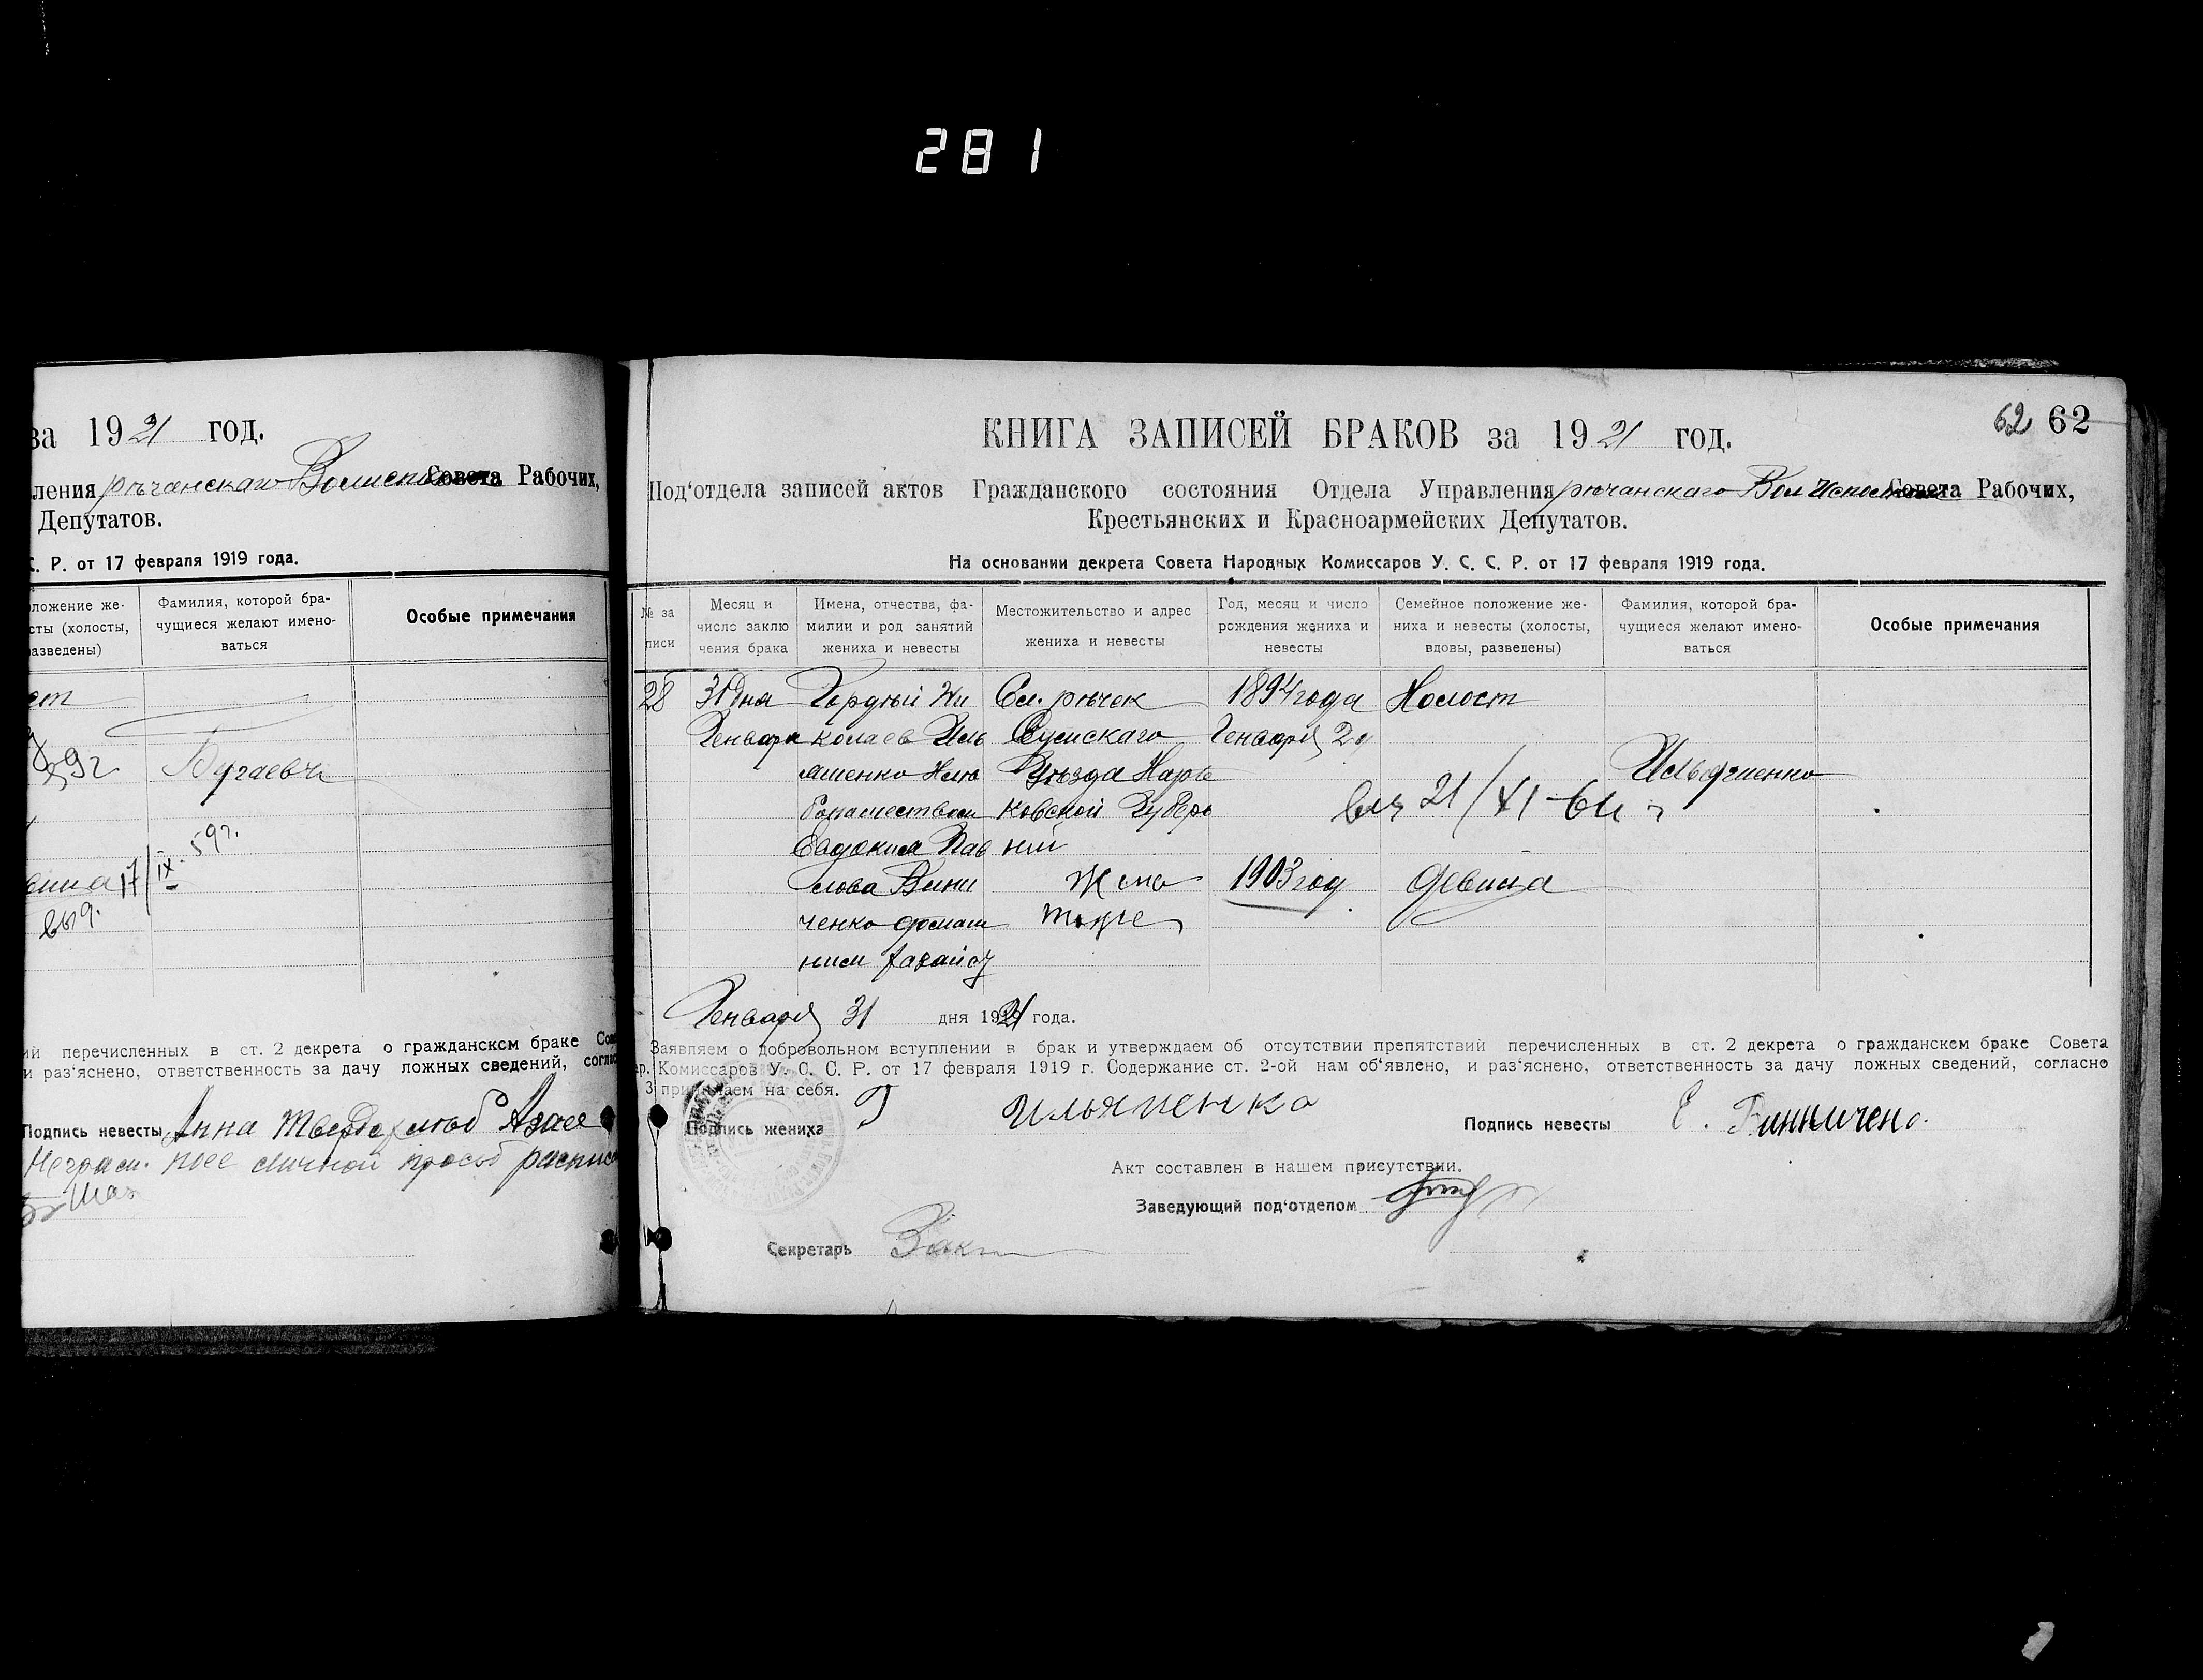 281
за 1921 год.
ления рѣчанскаго Совета Рабочих,
Депутатов.
С. Р. от 17 февраля 1919 года.
оложение же-
сты (холосты,
азведены)
Фамилия, которой бра-
чущиеся желают имено-
ваться
Особые примечания
59г.
17/IX
ий перечисленных в ст. 2 декрета о гражданском браке Сов
и раз'яснено, ответственность за дачу ложных сведений, соглас
Подпись невесты Анна
Неграм. личной
62 62
КНИГА ЗАПИСЕЙ БРАКОВ за 1921 год.
Под'отдела записей актов Гражданского состояния Отдела Управления рѣчанскаго Совета Рабочих,
Крестьянских и Красноармейских Депутатов.
На основании декрета Совета Народных Комиссаров У. С. С. Р. от 17 февраля 1919 года.
№ за
писи
Месяц и
число заклю
чения брака
Имена, отчества, фа-
милии и род занятий
жениха и невесты
Местожительство и адрес
жениха и невесты
Год, месяц и число
рождения жениха и
невесты
Семейное положение же-
ниха и невесты (холосты,
вдовы, разведены)
Фамилия, которой бра-
чущиеся желают имено-
ваться
Особые примечания
28 31 дня Гордѣй Ни Сл. рѣчек 1894 года Холост
Генваря колаев Иль Сумскаго Генваря 2
яшенко Уѣзда Харь Ильяшенко
ковской Губер 21/XI
Евдокия Пав ній
лова Вини 1903 год девица
ченко домаш тоже
Генваря 31 дня 1921 года.
Заявляем о добровольном вступлении в брак и утверждаем об отсутствии препятствий перечисленных в ст. 2 декрета о гражданском браке Совета
ар. Комиссаров У. С. С. Р. от 17 февраля 1919 г. Содержание ст. 2-ой нам об'явлено, и раз'яснено, ответственность за дачу ложных сведений, согласно
3 принимаем на себя.
Подпись жениха Г Ильяшенко Подпись невесты Е. Винничено
Акт составлен в нашем присутствии.
Заведующий под'отделом
Секретарь